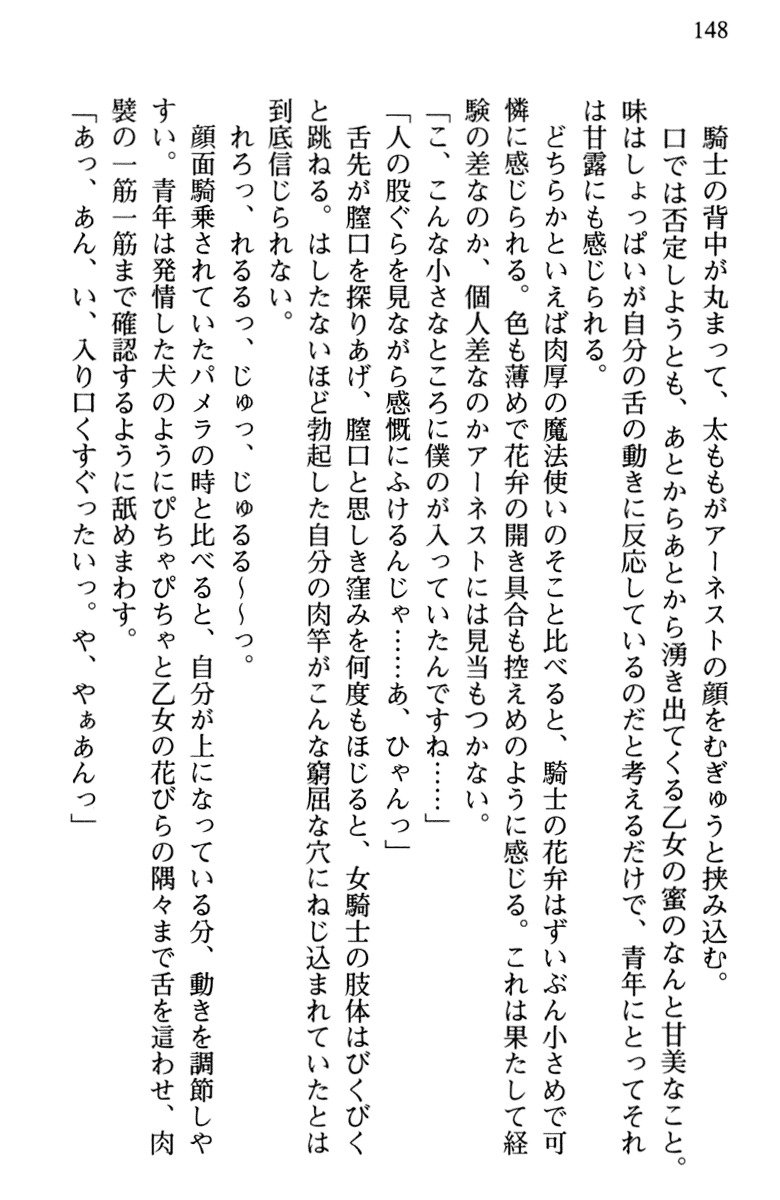 148
騎士の背中が丸まって、太ももがアーネストの顔をむぎゅうと挟み込む。
口では否定しようとも、あとからあとから湧き出てくる乙女の蜜のなんと甘美なこと。
味はしょっぱいが自分の舌の動きに反応しているのだと考えるだけで、青年にとってそれ
は甘露にも感じられる。
どちらかといえば肉厚の魔法使いのそこと比べると、騎士の花弁はずいぶん小さめで可
憐に感じられる。色も薄めで花弁の開き具合も控えめのように感じる。これは果たして経
験の差なのか、個人差なのかアーネストには見当もつかない。
「こ、こんな小さなところに僕のが入っていたんですね……」
「人の股ぐらを見ながら感慨にふけるんじゃ……あ、ひゃんっ」
舌先が膣口を探りあげ、膣口と思しき窪みを何度もほじると、女騎士の肢体はびくびく
と跳ねる。はしたないほど勃起した自分の肉竿がこんな窮屈な穴にねじ込まれていたとは
到底信じられない。
れろっ、れるるっ、じゅっ、じゅるる～～っ。
顔面騎乗されていたパメラの時と比べると、自分が上になっている分、動きを調節しや
すい。青年は発情した犬のようにぴちゃぴちゃと乙女の花びらの隅々まで舌を這わせ、肉
襞の一筋一筋まで確認するように舐めまわす。
「あっ、あん、い、入り口くすぐったいっ。や、やぁあんっ」